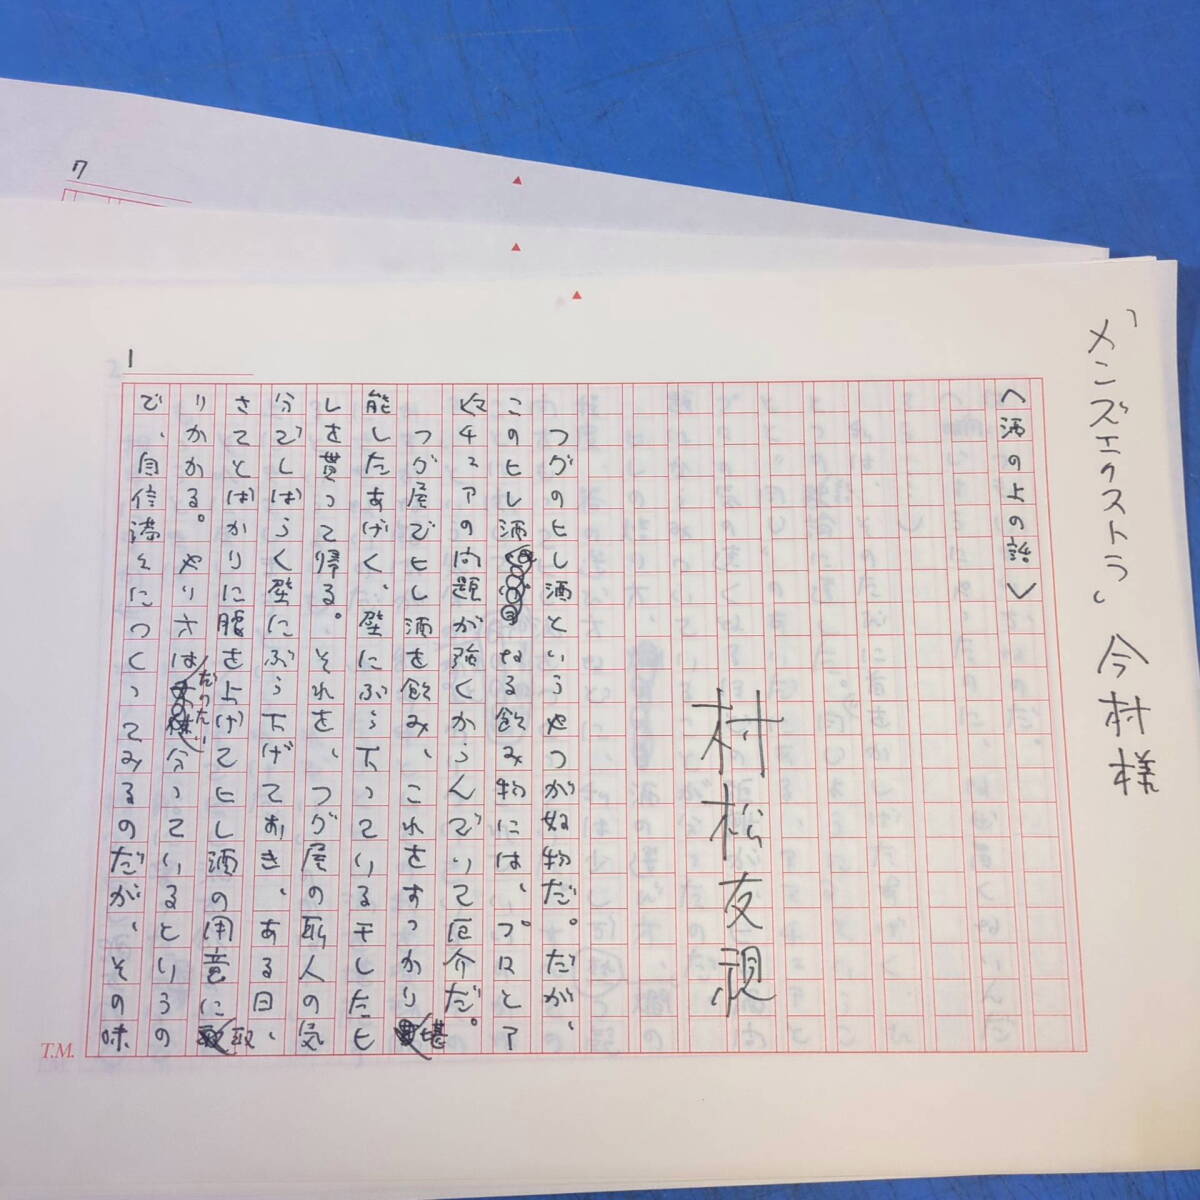 「メンズエクストラ」今村様
〈酒の上の話〉
村松友視
フグのヒレ酒というやつが好物だ。だが、
このヒレ酒なる飲み物には、プロとア
マチュアの問題が強くからんでいて厄介だ。
フグ屋でヒレ酒を飲み、これをすっかり堪
能したあげく、壁にぶら下っている干したヒ
レを貰って帰る。それを、フグ屋の職人の気
分でしばらく壁にぶら下げておき、ある日、
さてとばかりに腰を上げてヒレ酒の用意に取
りかかる。やりさはだいたい分っているという
で、自信満々につくってみるのだが、その味
1
7
T.M.